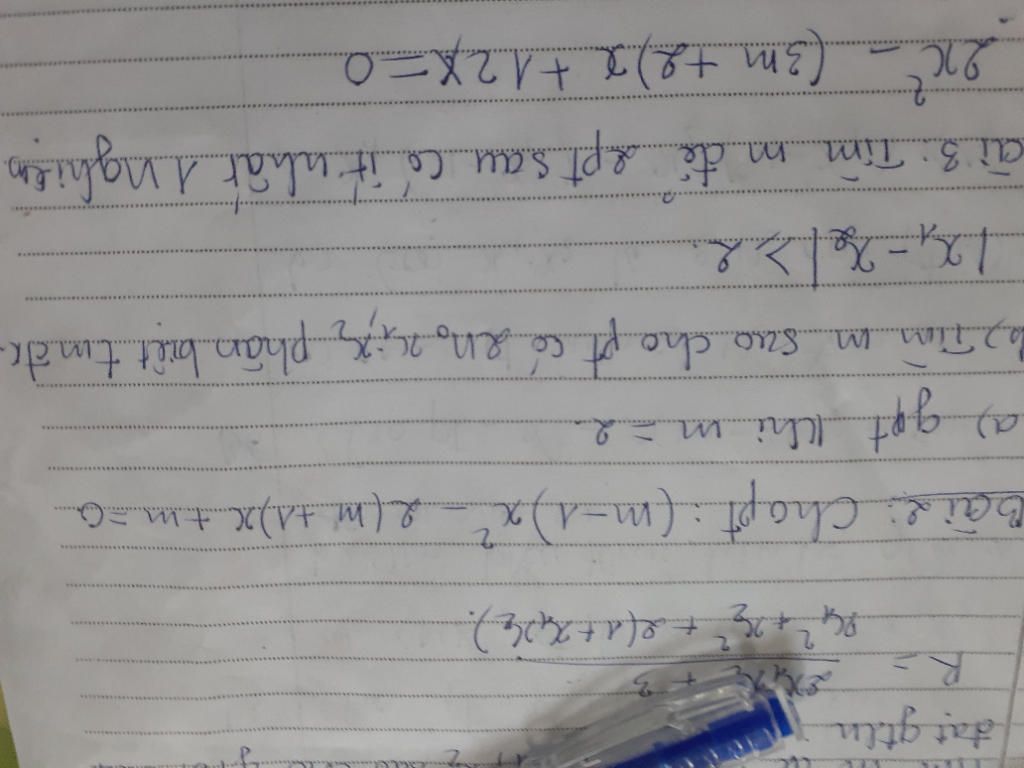 đạt gtln
R = \frac{2x_1x_2 + 3}{x_1^2 + x_2^2 + 2(1 + x_1x_2)}.
Bài 2: Cho pt: (m-1)x² - 2(m+1)x + m = 0
a) gpt khi m = 2.
b) Tìm m sao cho pt có 2 n₀ x₁; x₂ phân biệt tm đk
|x₁ - x₂| ≥ 2.
ài 3: Tìm m để 2pt sau có ít nhất 1 nghiệm
2x² - (3m+2)x + 12 = 0